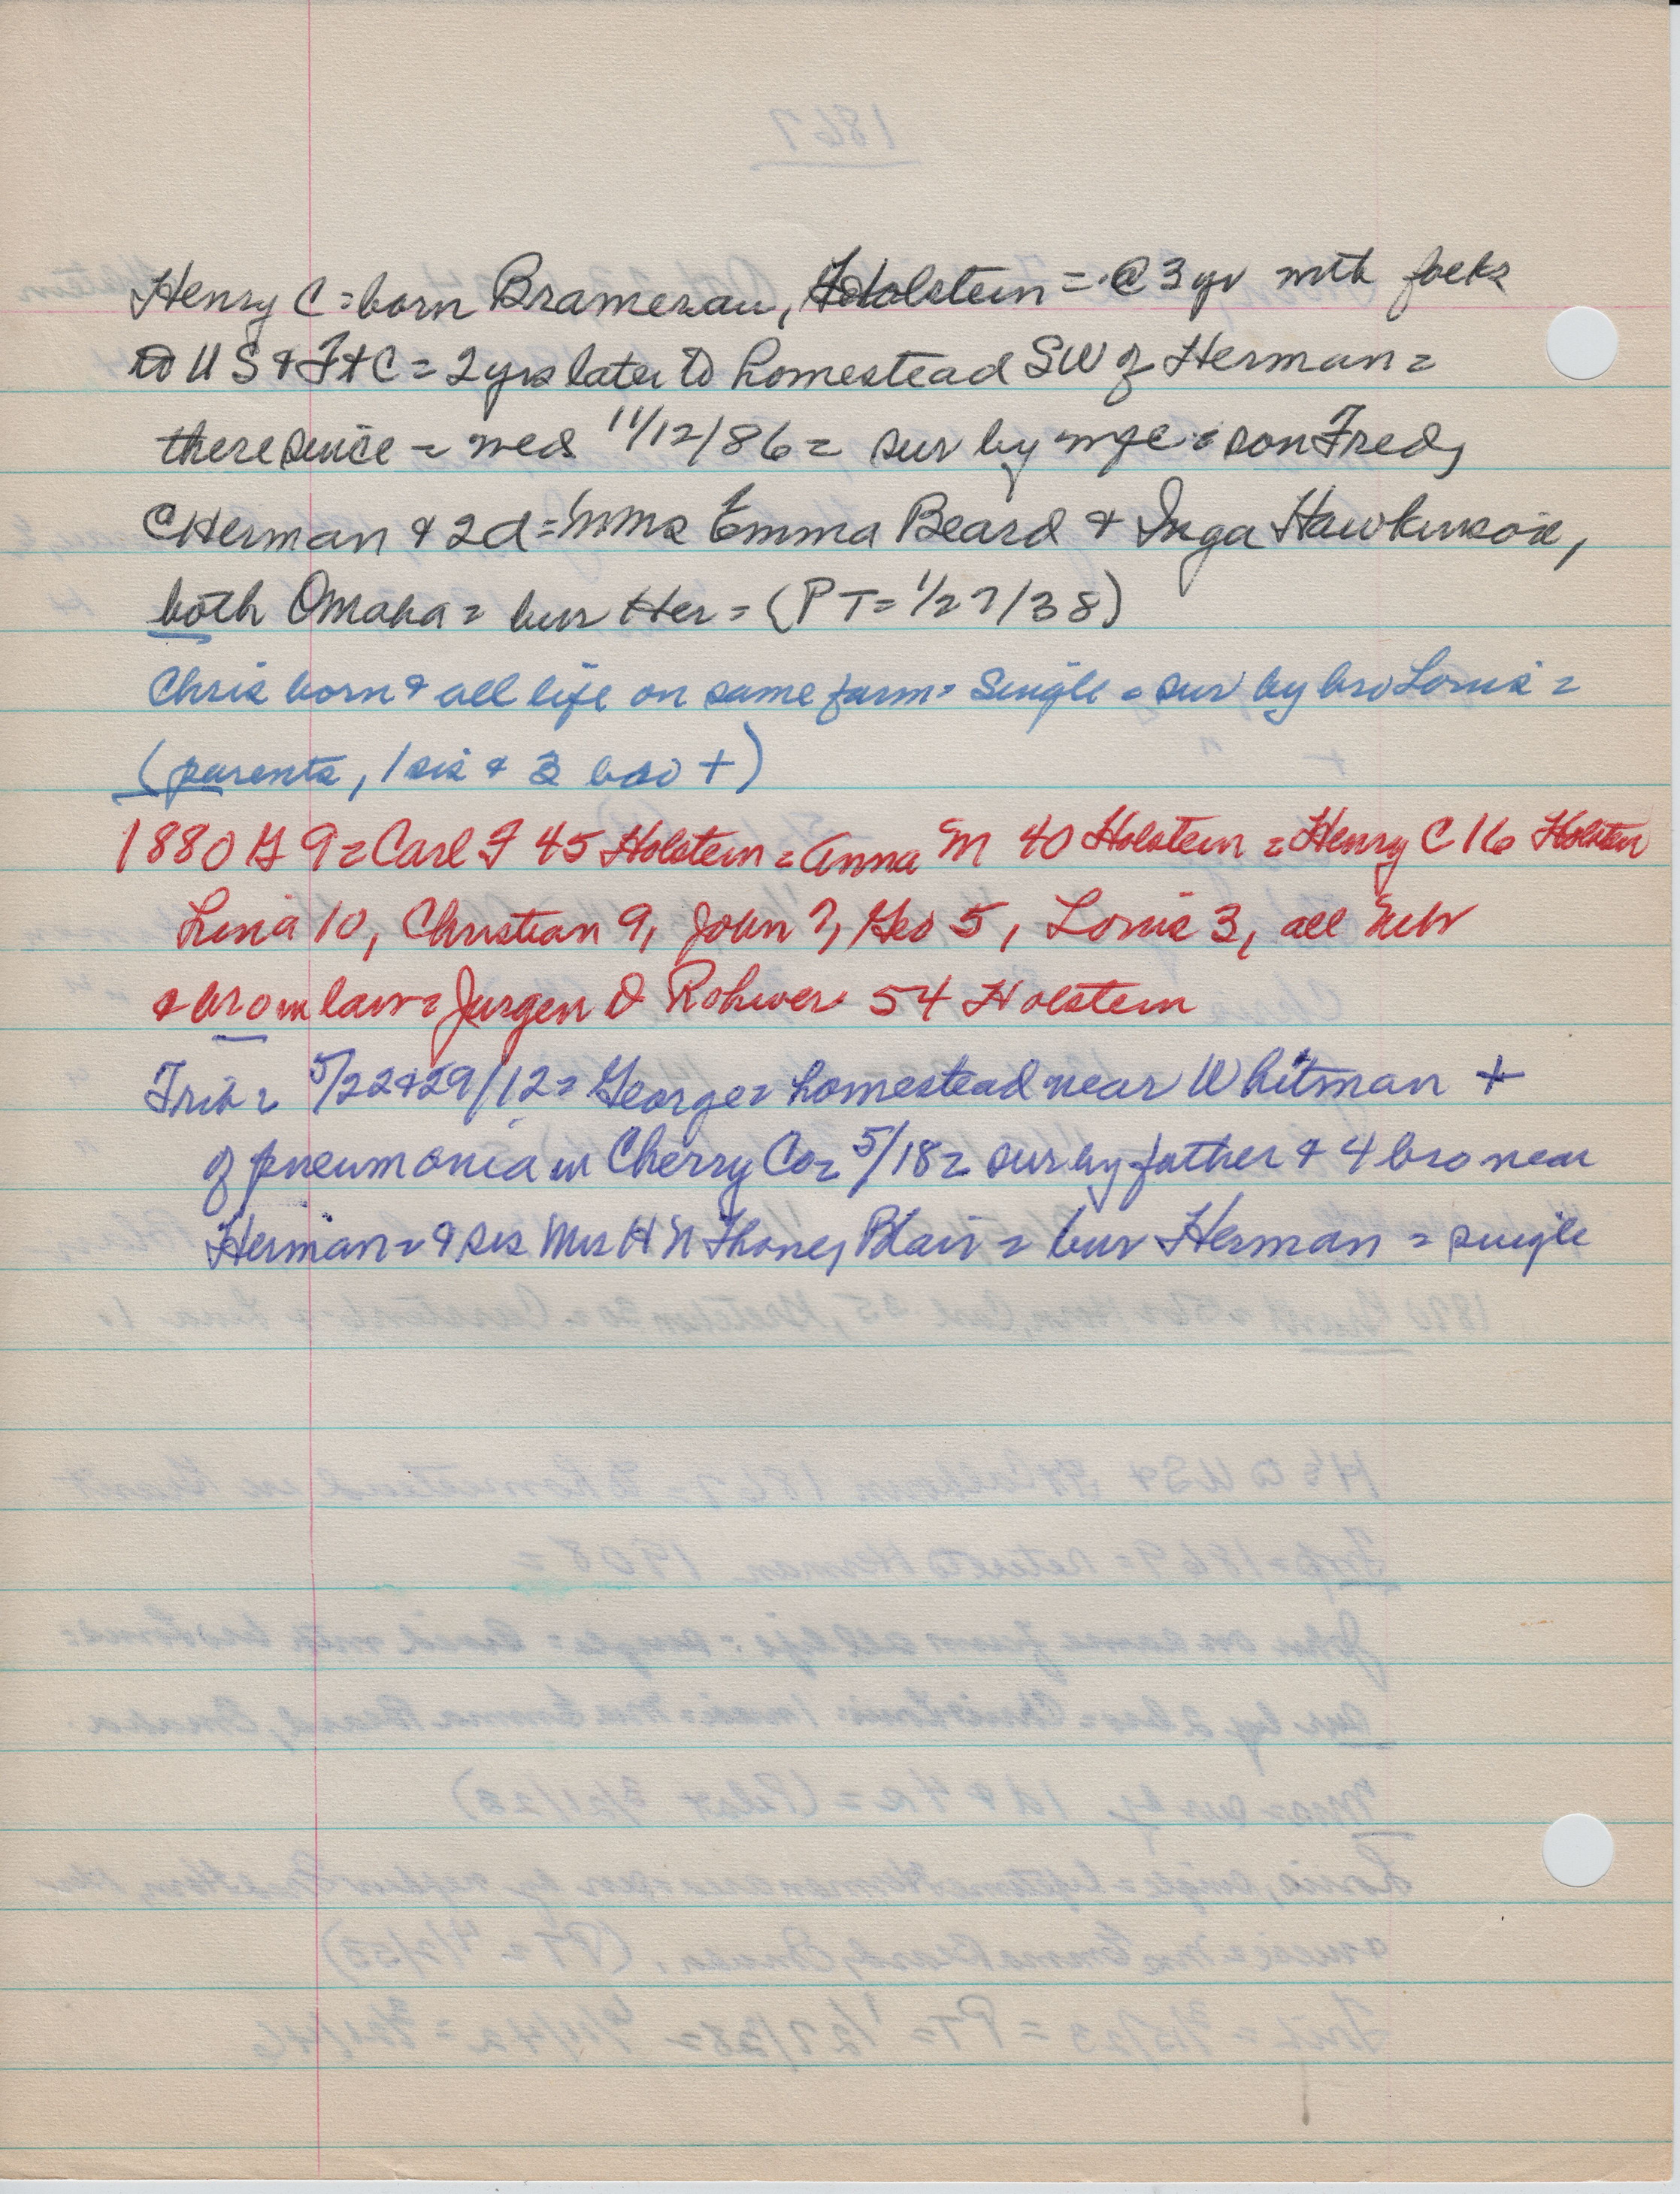 Henry C = born Bramerau, Holstein = @ 3 yr with folks
to US & Ft C = 2 yrs later to homestead SW of Herman =
there since = wed 11/12/86 = sur by wfe = son Fred,
Herman & 2d = Mms Emma Beard & Inga Hawkinson,
both Omaha = bur Her = (PT = 1/27/38)
Chris born & all life on same farm = Single = sur by bro Louis =
(parents, 1 sis & 3 bro +)
1880 G 9 = Carl F 45 Holstein = Anna M 40 Holstein = Henry C 16 Holstein
Lena 10, Christian 9, John 7, Geo 5, Louis 3, all Neb
& bro in law = Jurgen D Rohwer 54 Holstein
Trib = 5/22&29/12 = George = homestead near Whitman +
of pneumonia in Cherry Co = 5/18 = sur by father & 4 bro near
Herman = & sis Mrs H N Thone, Blair = bur Herman = single